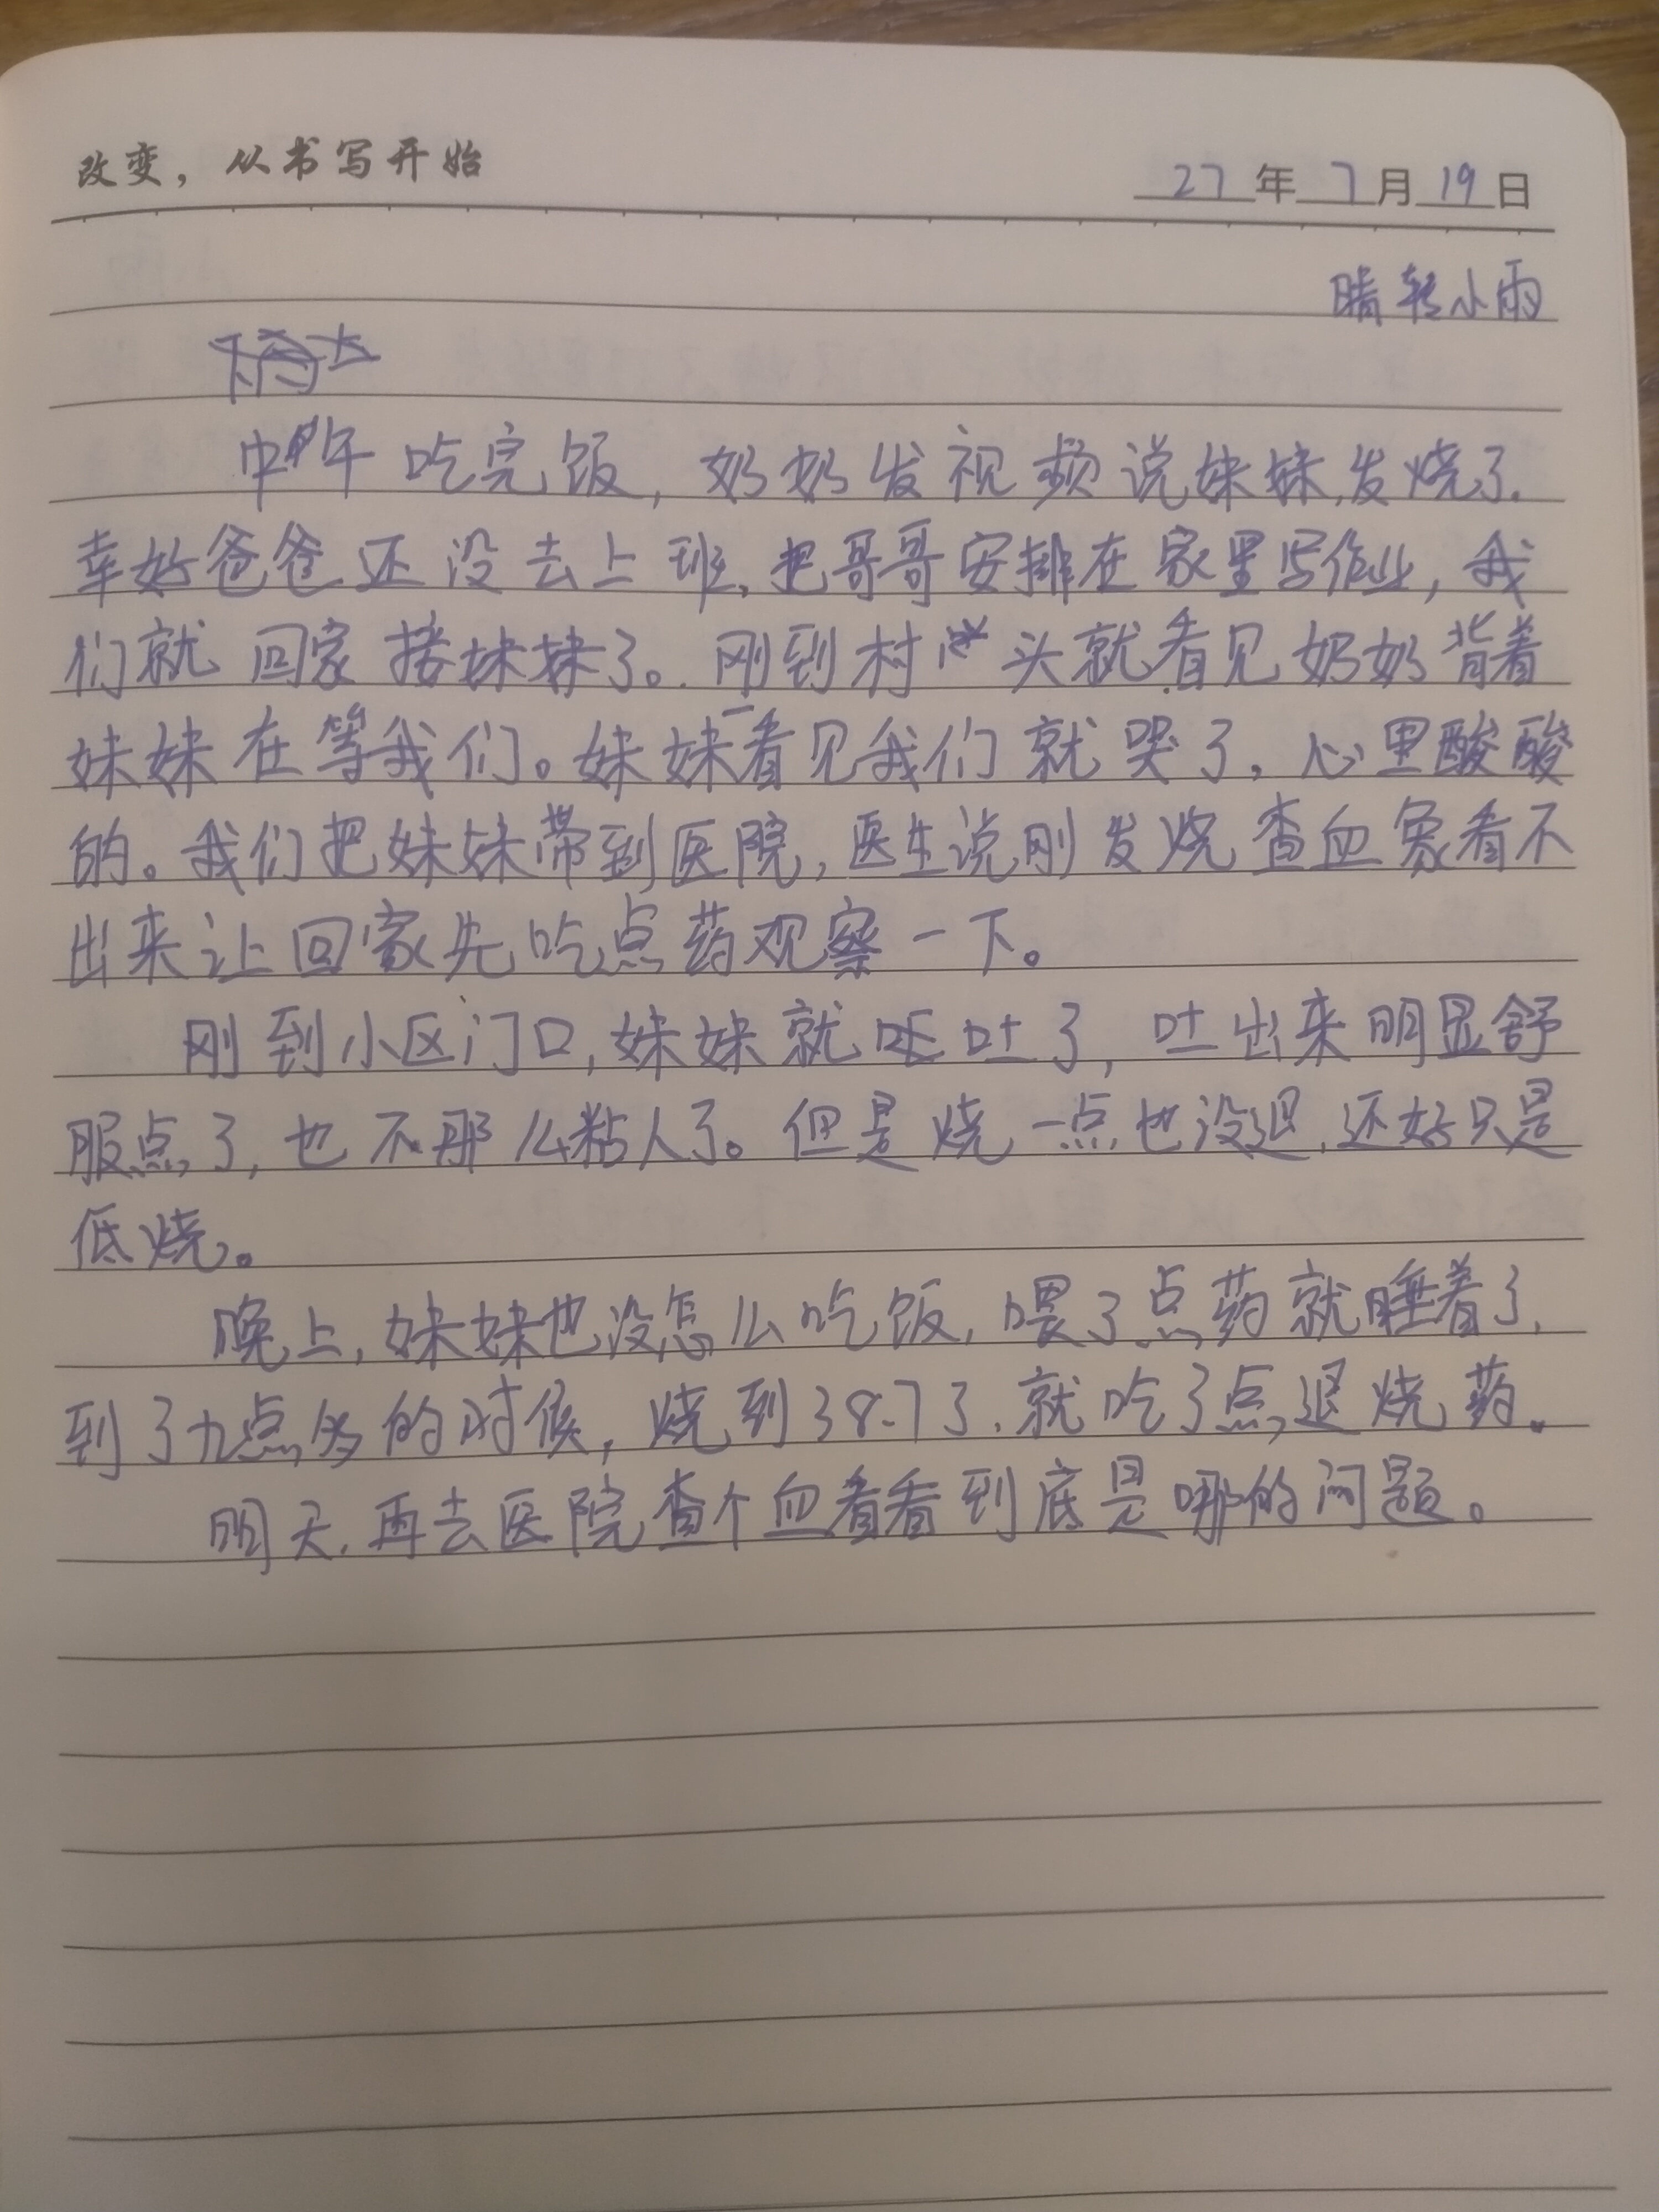 改变，从书写开始
27年7月19日
晴转小雨
中午吃完饭，奶奶发视频说妹妹发烧了.
幸好爸爸还没去上班.把哥哥安排在家里写作业，我
们就回家接妹妹了。刚到村头就看见奶奶背着
妹妹在等我们。妹妹一看见我们就哭了，心里酸酸
的。我们把妹妹带到医院，医生说刚发烧查血象看不
出来让回家先吃点药观察一下。
刚到小区门口，妹妹就呕吐了，吐出来明显舒
服点了，也不那么粘人了。但是烧一点也没退，还好只是
低烧。
晚上，妹妹也没怎么吃饭，喂了点药就睡着了，
到了九点多的时候，烧到38.7了.就吃了点退烧药。
明天.再去医院查个血看看到底是哪的问题。